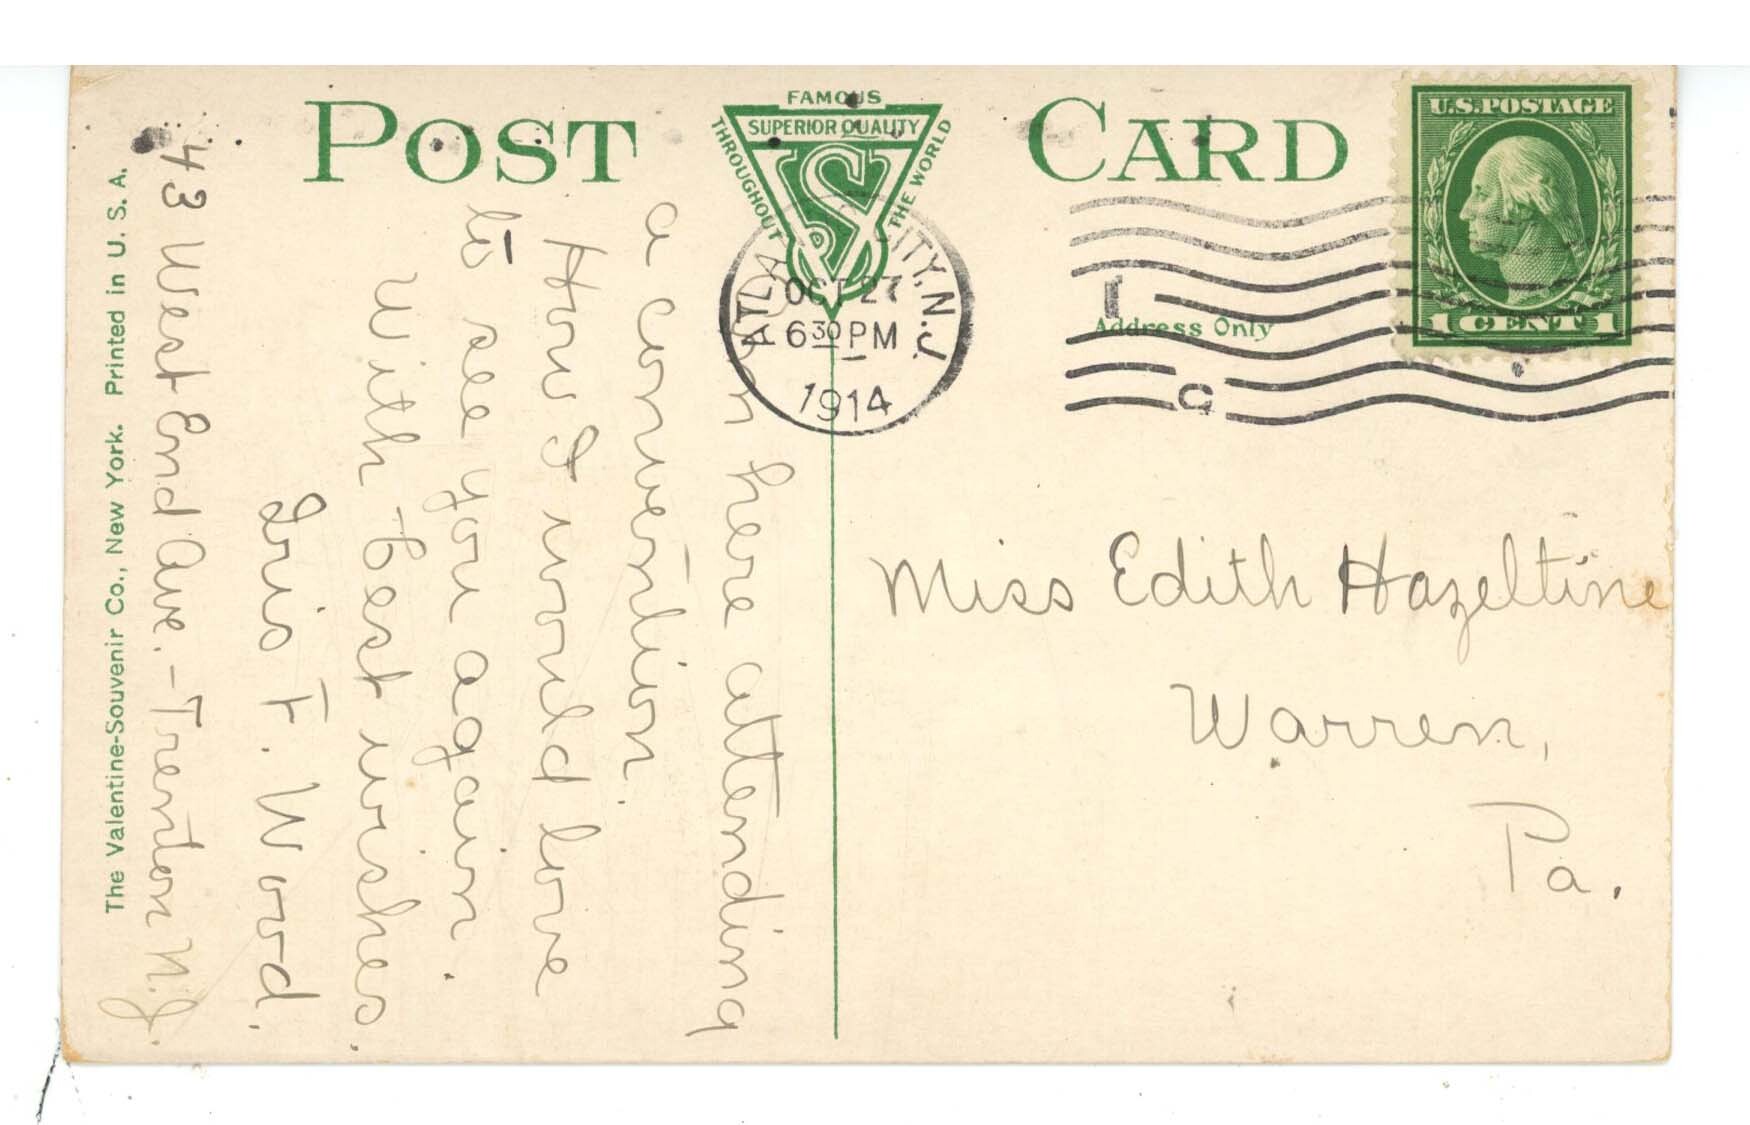 POST CARD
FAMOUS
SUPERIOR QUALITY
THROUGHOUT
THE WORLD
VS
U.S.POSTAGE
1 CENT 1
ATLA CITY, N.J.
OCT 27
6 30 PM
1914
Address Only
here attending
a convention.
How I would love
to see you again.
With best wishes,
Iris F. Wood.
43 West End Ave. - Trenton N.J.
The Valentine-Souvenir Co., New York. Printed in U. S. A.
Miss Edith Hazeltine
Warren,
Pa.